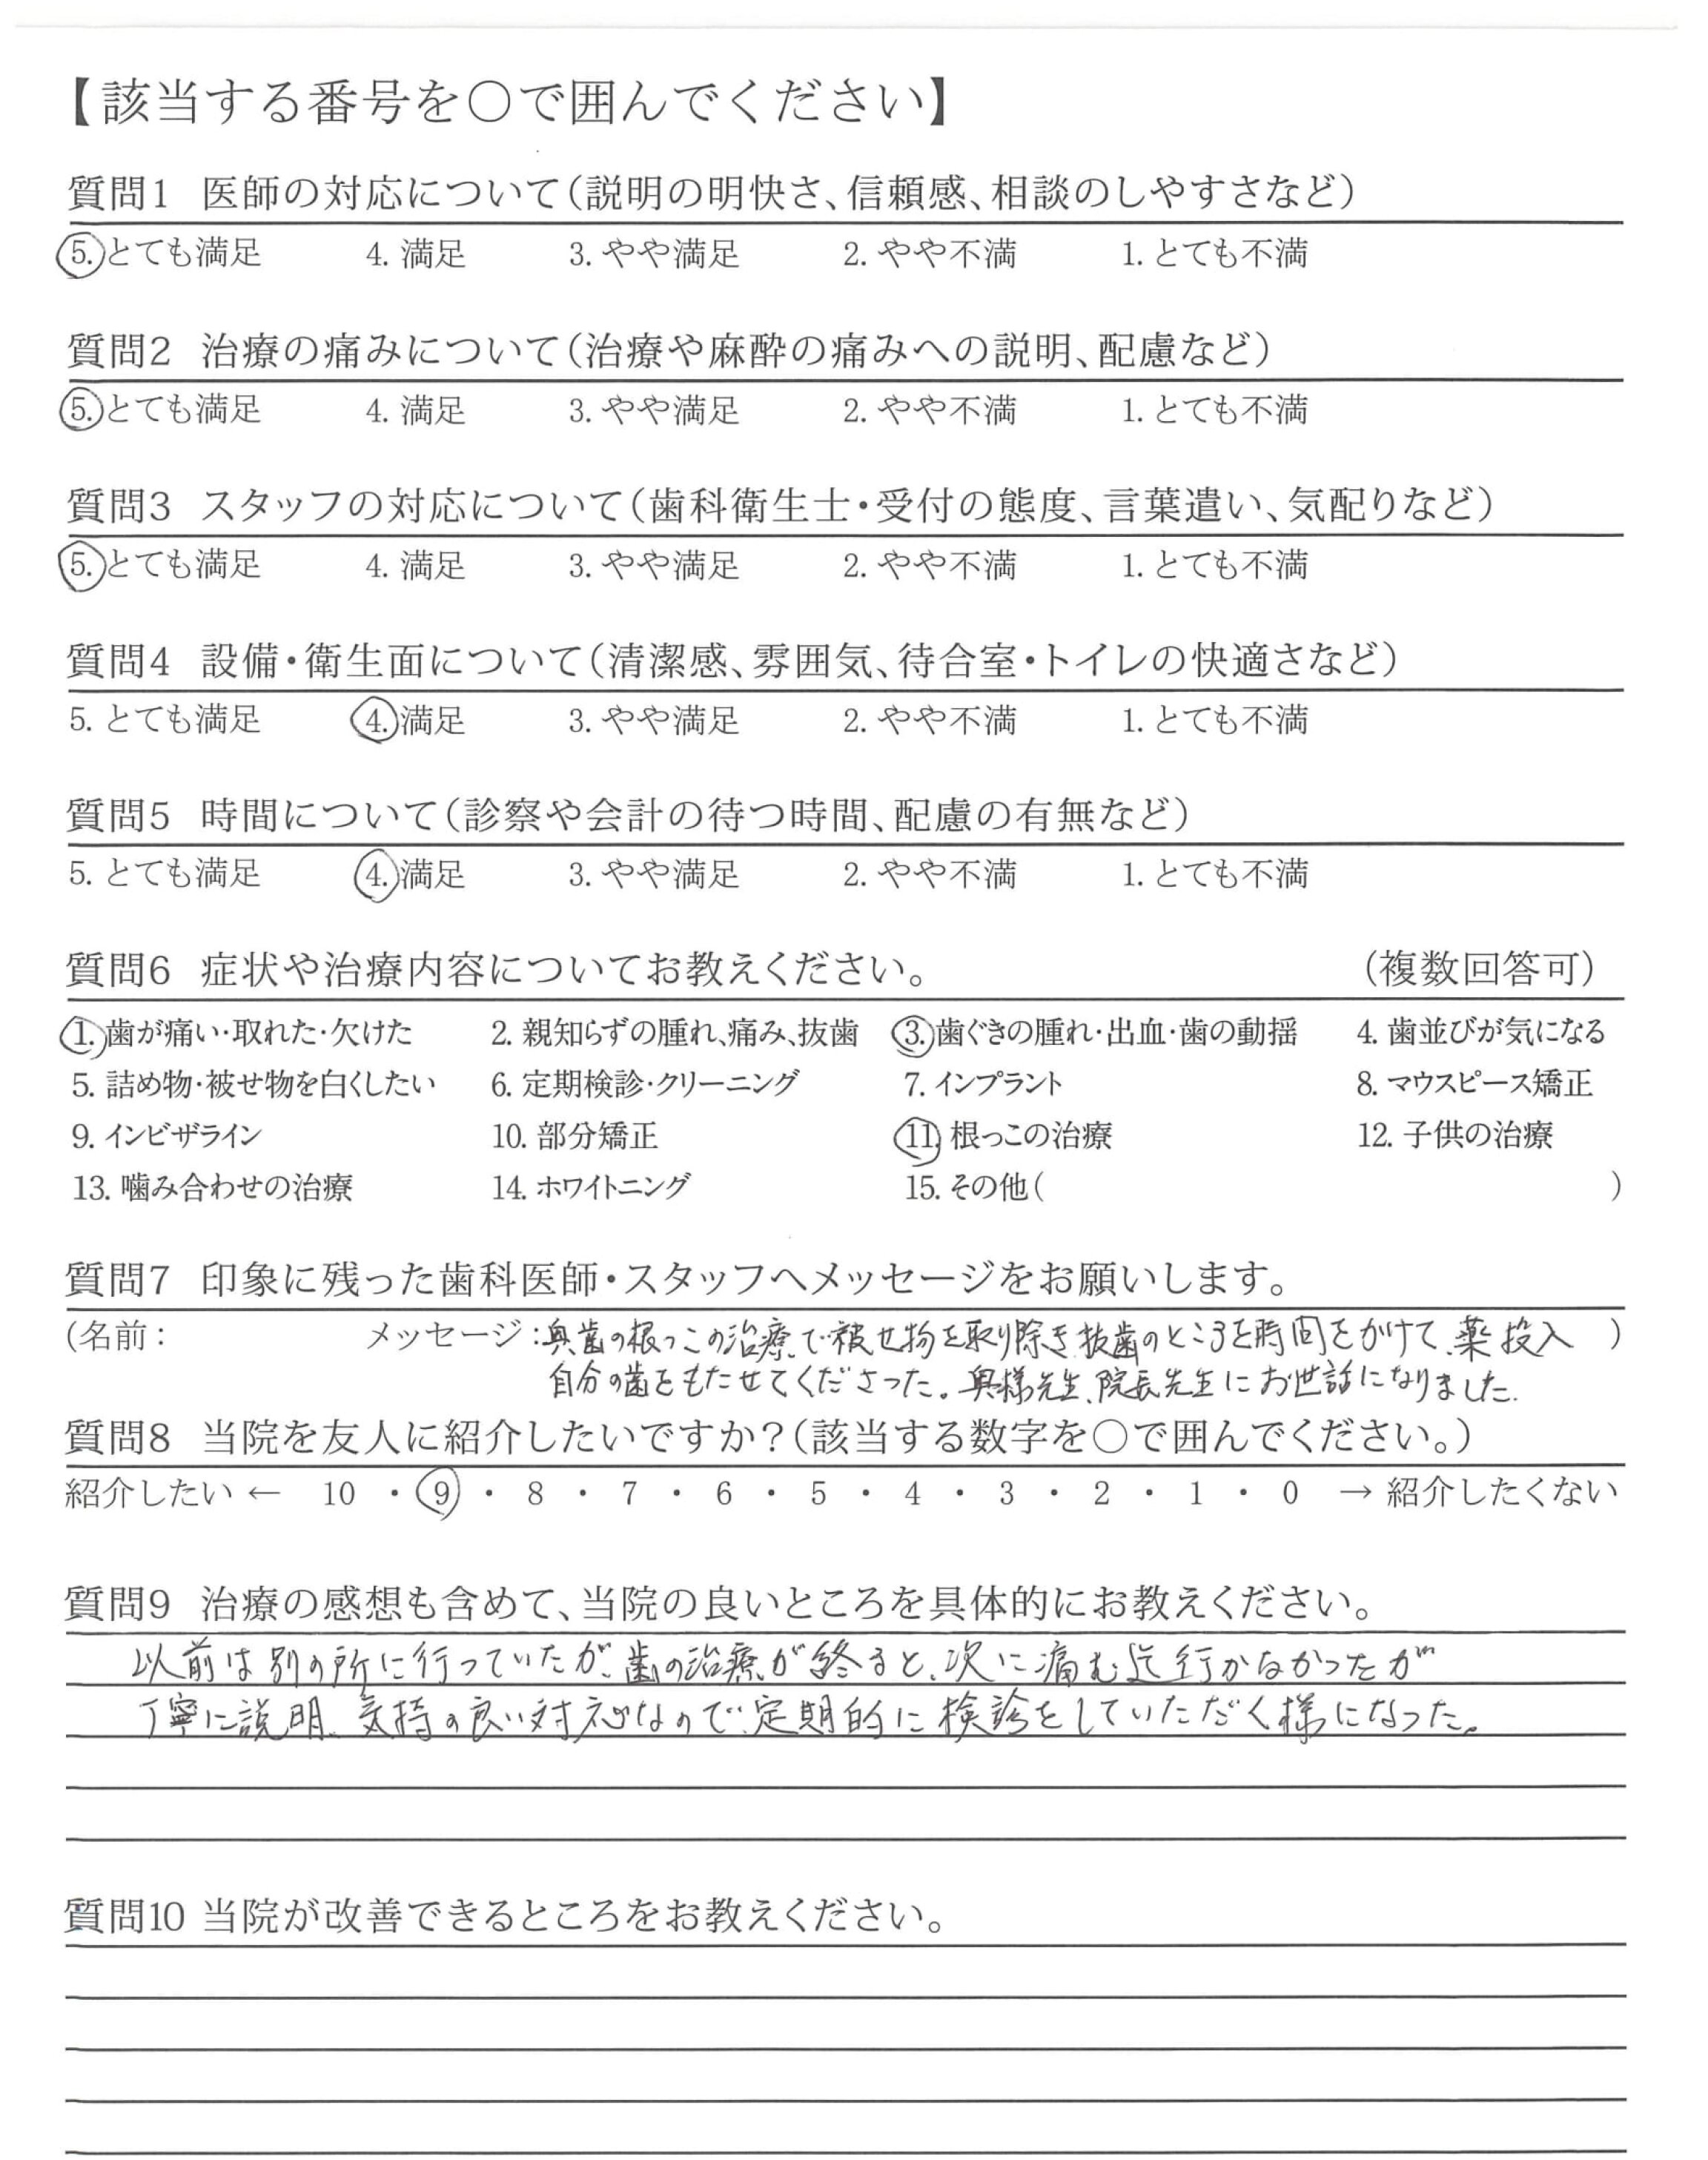 【該当する番号を○で囲んでください】
質問1 医師の対応について(説明の明快さ、信頼感、相談のしやすさなど)
5. とても満足 4. 満足 3. やや満足 2. やや不満 1. とても不満
質問2 治療の痛みについて(治療や麻酔の痛みへの説明、配慮など)
5. とても満足 4. 満足 3. やや満足 2. やや不満 1. とても不満
質問3 スタッフの対応について(歯科衛生士・受付の態度、言葉遣い、気配りなど)
5. とても満足 4. 満足 3. やや満足 2. やや不満 1. とても不満
質問4 設備・衛生面について(清潔感、雰囲気、待合室・トイレの快適さなど)
5. とても満足 4. 満足 3. やや満足 2. やや不満 1. とても不満
質問5 時間について(診察や会計の待つ時間、配慮の有無など)
5. とても満足 4. 満足 3. やや満足 2. やや不満 1. とても不満
質問6 症状や治療内容についてお教えください。 (複数回答可)
1. 歯が痛い・取れた・欠けた 2. 親知らずの腫れ、痛み、抜歯 3. 歯ぐきの腫れ・出血・歯の動揺 4. 歯並びが気になる
5. 詰め物・被せ物を白くしたい 6. 定期検診・クリーニング 7. インプラント 8. マウスピース矯正
9. インビザライン 10. 部分矯正 11. 根っこの治療 12. 子供の治療
13. 噛み合わせの治療 14. ホワイトニング 15. その他( )
質問7 印象に残った歯科医師・スタッフへメッセージをお願いします。
(名前: メッセージ:奥歯の根っこの治療で被せ物を取り除き抜歯のところを時間をかけて、薬投入 )
自分の歯をもたせてくださった。奥様先生、院長先生にお世話になりました.
質問8 当院を友人に紹介したいですか?(該当する数字を○で囲んでください。)
紹介したい ← 10 ・ 9 ・ 8 ・ 7 ・ 6 ・ 5 ・ 4 ・ 3 ・ 2 ・ 1 ・ 0 → 紹介したくない
質問9 治療の感想も含めて、当院の良いところを具体的にお教えください。
以前は別の所に行っていたが、歯の治療が終ると、次に痛む迄行かなかったが
丁寧に説明、気持の良い対応なので、定期的に検診をしていただく様になった。
質問10 当院が改善できるところをお教えください。